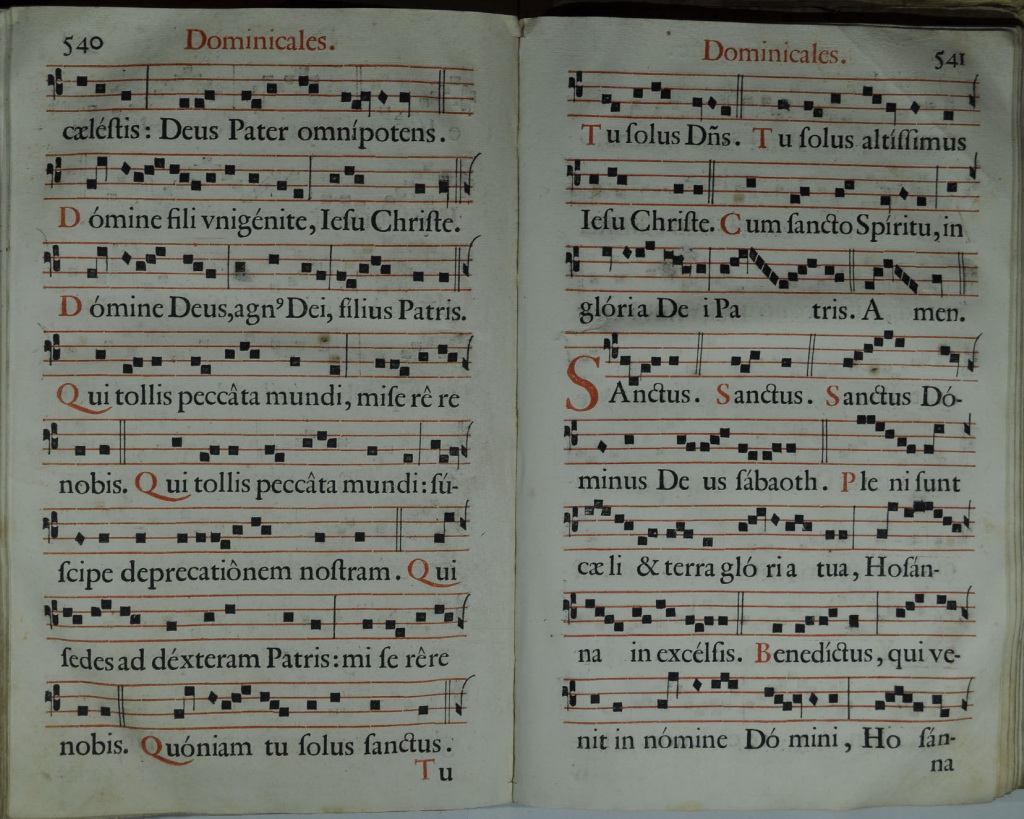 540
Dominicales.
cæléſtis: Deus Pater omnípotens.
Dómine fili vnigénite, Ieſu Chriſte.
Dómine Deus, agnꝰ Dei, filius Patris.
Qui tollis peccâta mundi, miſe rê re
nobis. Qui tollis peccâta mundi: ſú-
ſcipe deprecatiônem noſtram. Qui
ſedes ad déxteram Patris: mi ſe rêre
nobis. Quóniam tu ſolus ſanctus.
Tu
Dominicales.
541
Tu ſolus Dñs. Tu ſolus altíſſimus
Ieſu Chriſte. Cum ſancto Spíritu, in
glória De i Pa tris. A men.
SAnctus. Sanctus. Sanctus Dó-
minus De us ſábaoth. Ple ni ſunt
cæ li & terra gló ri a tua, Hoſán-
na in excélſis. Benedíctus, qui ve-
nit in nómine Dó mini, Ho ſán-
na